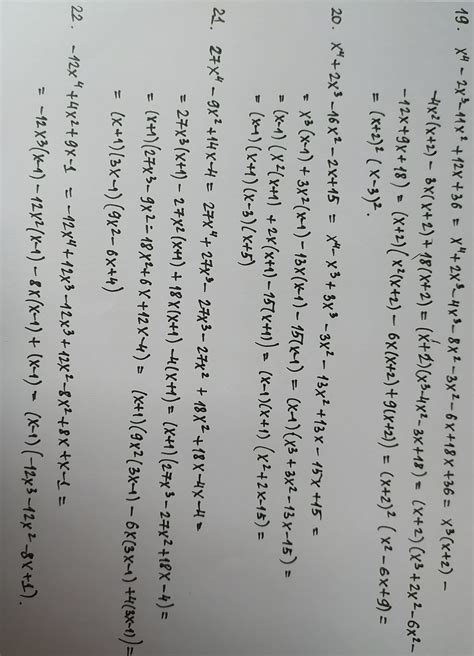 19. x⁴ - 2x³ - 11x² + 12x + 36 = x⁴ + 2x³ - 4x³ - 8x² - 3x² - 6x + 18x + 36 = x³(x+2) -
-4x²(x+2) - 3x(x+2) + 18(x+2) = (x+2)(x³-4x²-3x+18) = (x+2)(x³+2x²-6x²-
-12x+9x+18) = (x+2)(x²(x+2) - 6x(x+2) + 9(x+2)) = (x+2)²(x²-6x+9) =
= (x+2)²(x-3)².
20. x⁴ + 2x³ - 16x² - 2x + 15 = x⁴ - x³ + 3x³ - 3x² - 13x² + 13x - 15x + 15 =
= x³(x-1) + 3x²(x-1) - 13x(x-1) - 15(x-1) = (x-1)(x³+3x²-13x-15) =
= (x-1)(x²(x+1) + 2x(x+1) - 15(x+1)) = (x-1)(x+1)(x²+2x-15) =
= (x-1)(x+1)(x-3)(x+5)
21. 27x⁴ - 9x² + 14x - 4 = 27x⁴ + 27x³ - 27x³ - 27x² + 18x² + 18x - 4x - 4 =
= 27x³(x+1) - 27x²(x+1) + 18x(x+1) - 4(x+1) = (x+1)(27x³-27x²+18x-4) =
= (x+1)(27x³-9x²-18x²+6x+12x-4) = (x+1)(9x²(3x-1) - 6x(3x-1) + 4(3x-1)) =
= (x+1)(3x-1)(9x²-6x+4)
22. -12x⁴ + 4x² + 9x - 1 = -12x⁴ + 12x³ - 12x³ + 12x² - 8x² + 8x + x - 1 =
= -12x³(x-1) - 12x²(x-1) - 8x(x-1) + (x-1) = (x-1)(-12x³-12x²-8x+1).